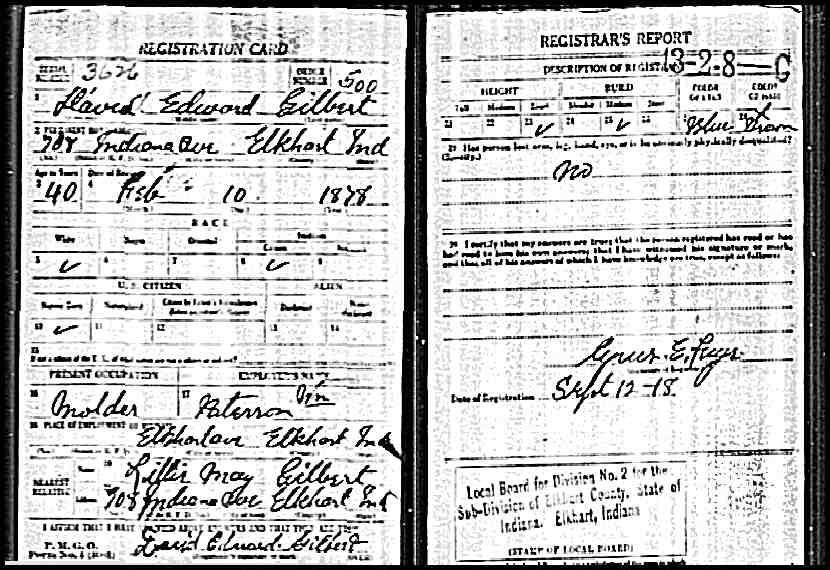 REGISTRATION CARD
SERIAL NUMBER 3626 ORDER NUMBER 500
1 David Edward Gilbert
2 PERMENENT HOME ADDRESS
708 Indiana Ave Elkhart Ind
Age in Years Date of Birth
3 40 4 Feb 10 1878
RACE
White Negro Oriental Indian
Citizen Noncitizen
5 ✓ 6 7 8 ✓ 9
U. S. CITIZEN ALIEN
Native Born Naturalized Declarant
10 ✓ 11 12 13 14
15
PRESENT OCCUPATION EMPLOYER'S NAME
16 Molder 17
18 PLACE OF EMPLOYMENT
Elkhart ave Elkhart Ind
NEAREST RELATIVE Name 19 Lillie May Gilbert
Address 20 708 Indiana Ave Elkhart Ind
I AFFIRM THAT I HAVE VERIFIED ABOVE ANSWERS AND THAT THEY ARE TRUE
P. M. G. O.
David Edward Gilbert
REGISTRAR'S REPORT
13-2-8-C
DESCRIPTION OF REGISTRANT
HEIGHT BUILD COLOR OF EYES COLOR OF HAIR
Tall Medium Short Slender Medium Stout
21 22 23 ✓ 24 25 ✓ 26 27 Blue 28 Brown
29 Has person lost arm, leg, hand, eye, or is he obviously physically disqualified?
(Specify.)
No
30 I certify that my answers are true; that the person registered has read or has
had read to him his own answers; that I have witnessed his signature or mark,
and that all of his answers of which I have knowledge are true, except as follows:
Date of Registration Sept 12-18.
Local Board for Division No. 2 for the
Sub-Division of Elkhart County, State of
Indiana. Elkhart, Indiana
(STAMP OF LOCAL BOARD)